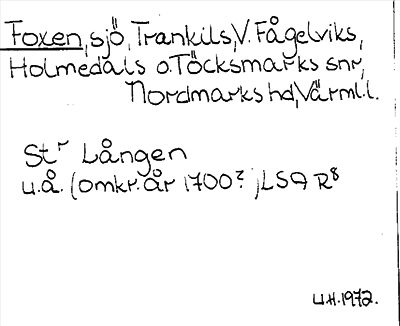 Foxen, sjö, Trankils, V. Fågelviks,
Holmedals o. Töcksmarks snr,
Nordmarks hd, Värml. l.
Str Lången
u.å. (omkr. år 1700?) LSA R8
U.H. 1972.